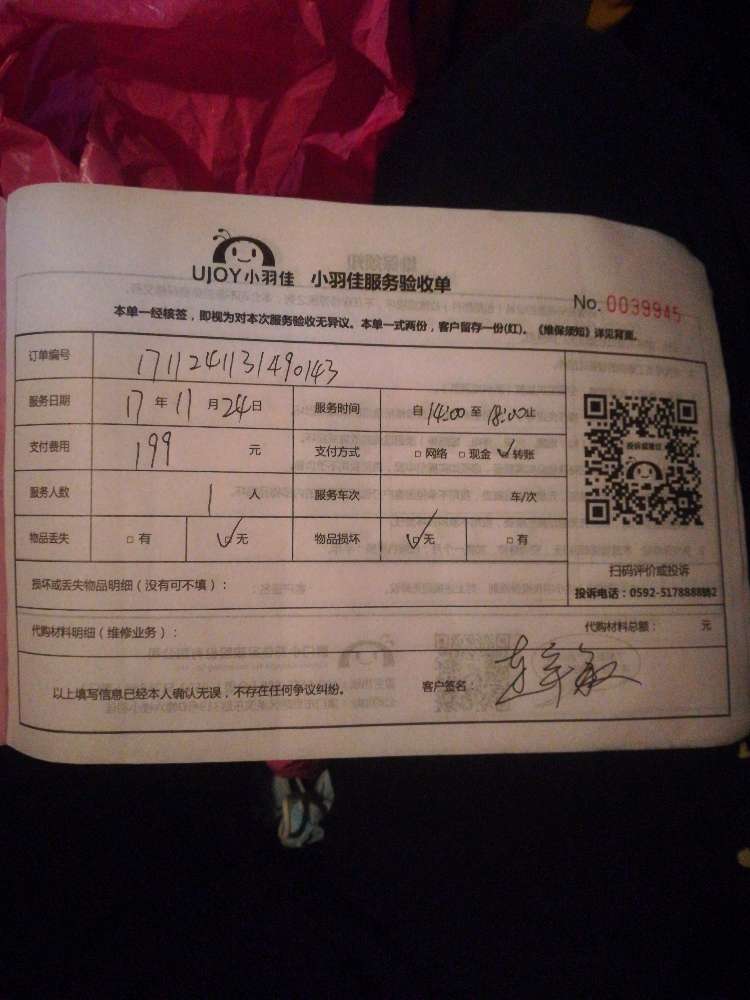 UJOY小羽佳 小羽佳服务验收单
No. 0039945
本单一经核签，即视为对本次服务验收无异议。本单一式两份，客户留存一份(红)。《维保须知》详见背面。
订单编号 1711241131490143
服务日期 17 年 11 月 24 日 服务时间 自 14:00 至 18:00 止
支付费用 199 元 支付方式 □ 网络 □ 现金 ☑ 转账
服务人数 1 人 服务车次 车/次
物品丢失 □ 有 ☑ 无 物品损坏 ☑ 无 □ 有
扫码评价或投诉
损坏或丢失物品明细（没有可不填）：
投诉电话：0592-5178888转2
代购材料明细（维修业务）： 代购材料总额： 元
以上填写信息已经本人确认无误，不存在任何争议纠纷。 客户签名：